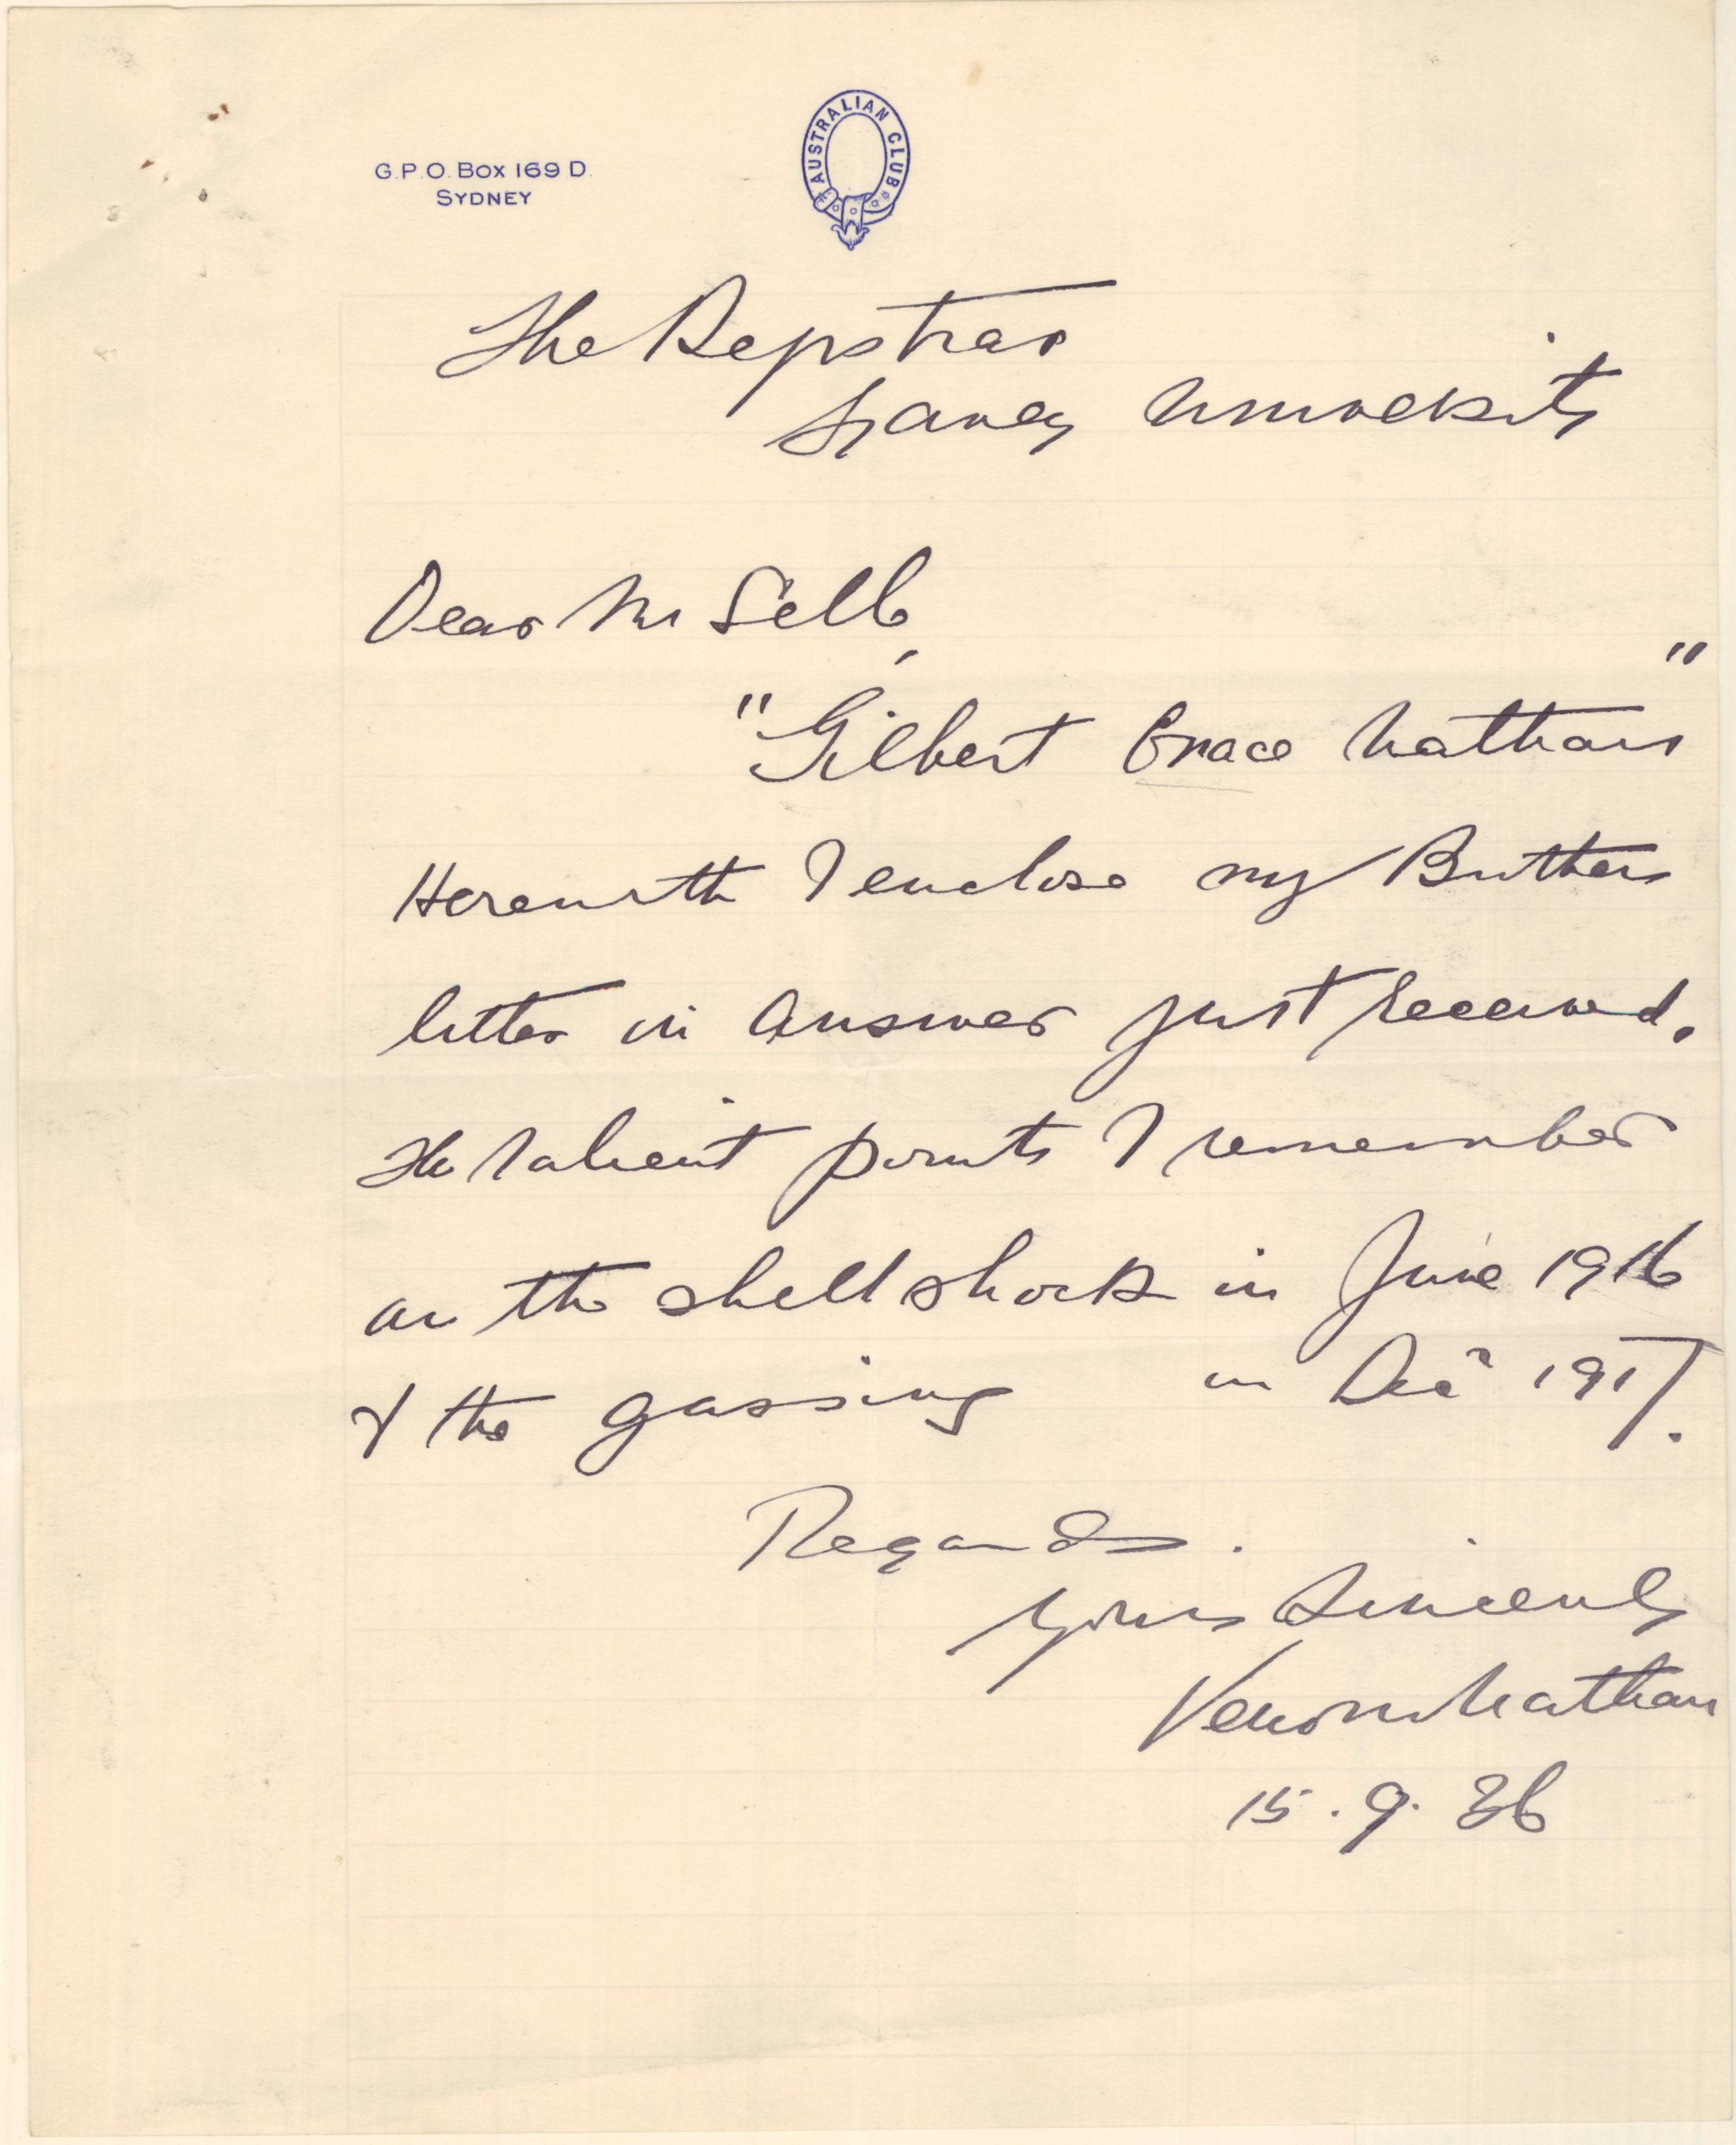 G.P.O. BOX 169 D.
SYDNEY
AUSTRALIAN CLUB
The Registrar
Sydney University
Dear Mr Selle,
"Gilbert Grace Nathan"
Herewith I enclose my Brothers
letter in answer just received.
The salient points I remember
are the shell shock in June 1916
& the gassing in Decr 1917.
Regards.
Yours Sincerely
Venour Nathan
15.9.36